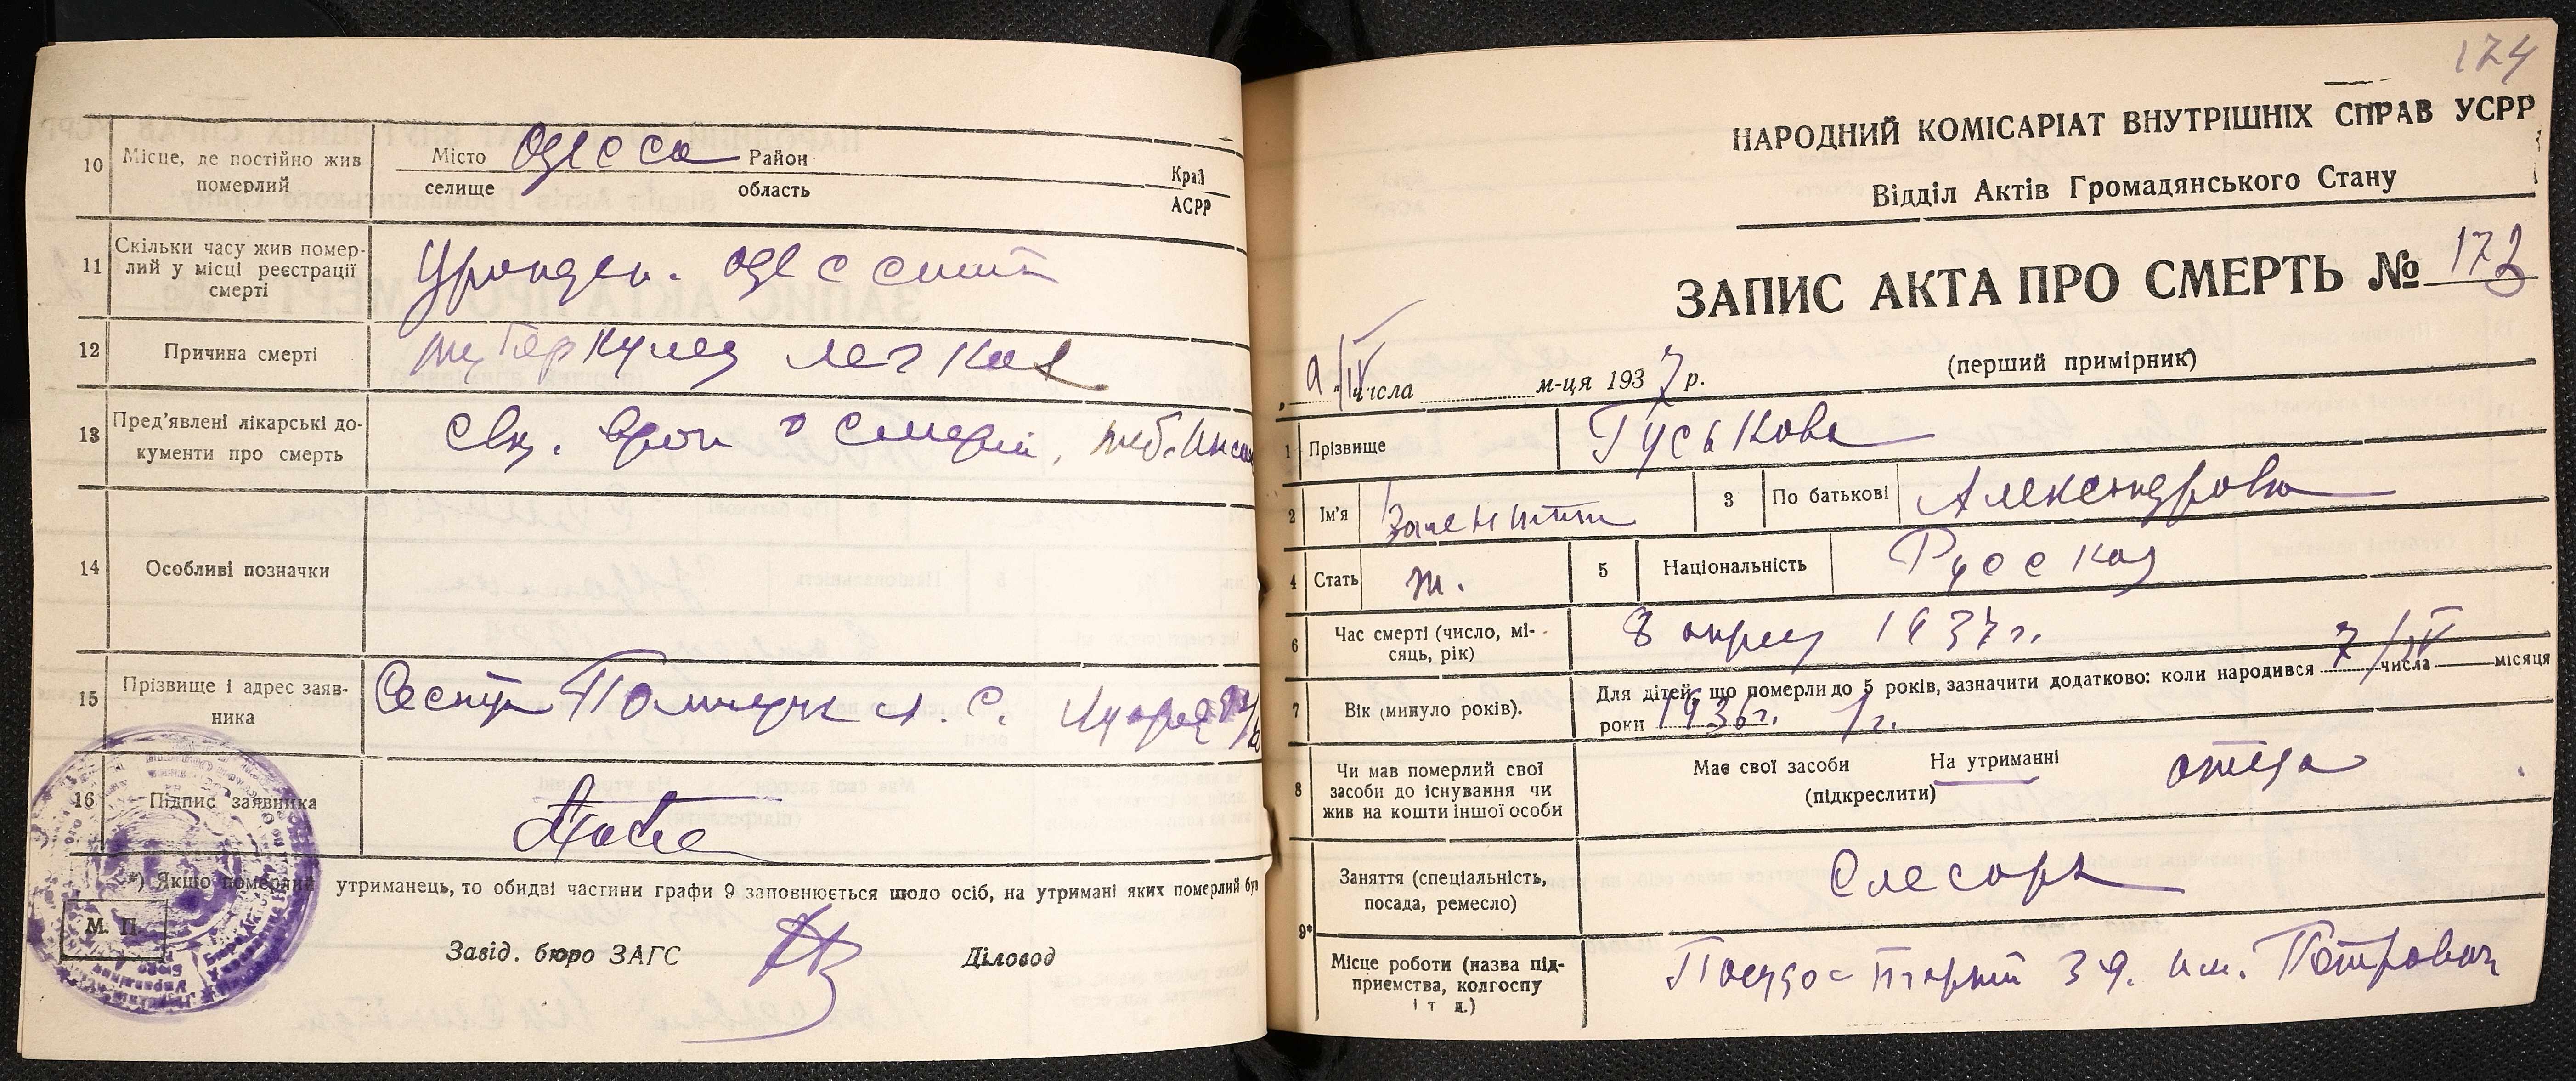 10 Місце, де постійно жив померлий
Місто Одесса Район Край
селище область АСРР
11 Скільки часу жив помер-
лий у місці реєстрації
смерті
Урожден. Одессит
12 Причина смерті
туберкулез легких
13 Пред'явлені лікарські до-
кументи про смерть
врач о смерти, туб.
14 Особливі позначки
15 Прізвище і адрес заяв-
ника
С.
16 Підпис заявника
*) Якщо померлий утриманець, то обидві частини графи 9 заповнюється щодо осіб, на утримані яких померлий був
М. П.
Завід. бюро ЗАГС Діловод
174
НАРОДНИЙ КОМІСАРІАТ ВНУТРІШНІХ СПРАВ УСРР
Відділ Актів Громадянського Стану
ЗАПИС АКТА ПРО СМЕРТЬ № 172
(перший примірник)
9/IV числа м-ця 1937 р.
1 Прізвище Гуськова
2 Ім'я
3 По батькові Александровна
4 Стать ж.
5 Національність Русская
6 Час смерті (число, мі-
сяць, рік)
8 апреля 1937 г.
7 Вік (минуло років).
Для дітей, що померли до 5 років, зазначити додатково: коли народився 7/IV числа місяця
роки 1936 г. 1 г.
8 Чи мав померлий свої
засоби до існування чи
жив на кошти іншої особи
Має свої засоби На утриманні отца
(підкреслити)
9* Заняття (спеціальність,
посада, ремесло)
Слесарь
Місце роботи (назва під-
приємства, колгоспу
і т д.)
им. Петровск